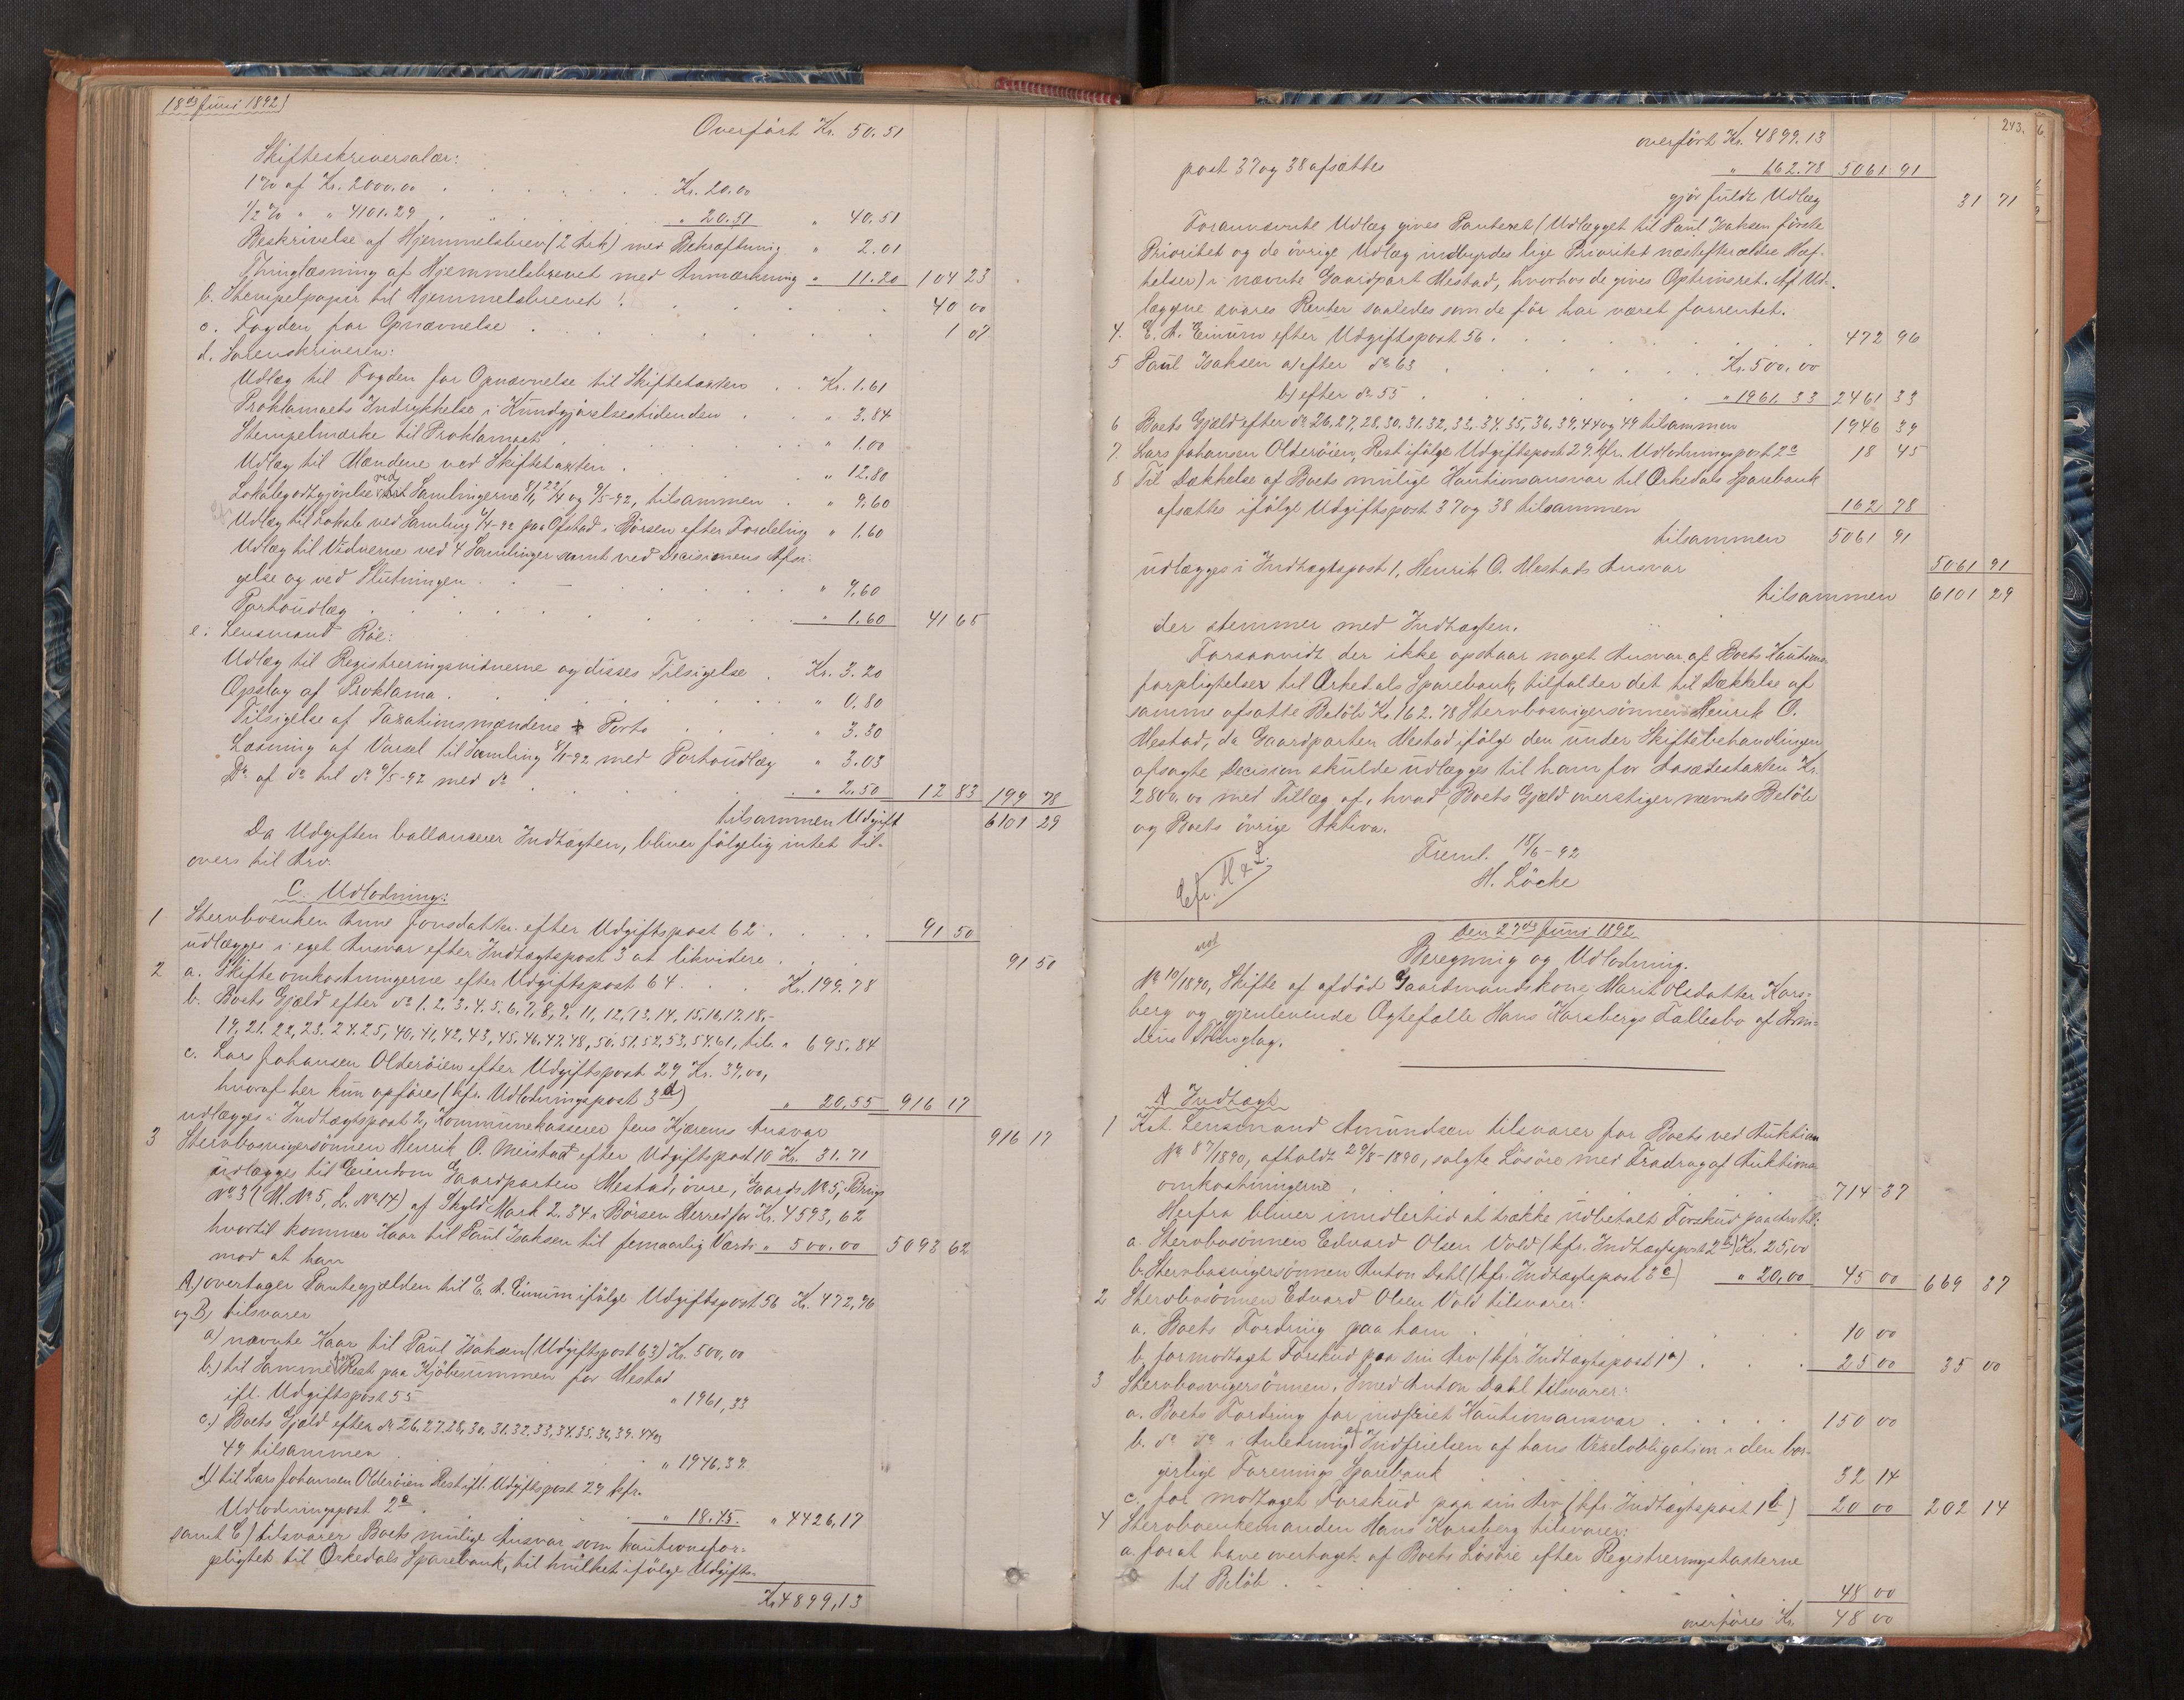 18de Juni 1892)
Overført Kr. 50.51
Skifteskriversalær:
1 % af Kr. 2000.00 . . . . . . Kr. 20.00
1/2 % " " 4101.29 . . . . . " 20.51 " 40.51
Beskrivelse af Hjemmelsbrev (2 Ark) med Bekræftning " 2.01
Thinglæsning af Hjemmelsbrevet med Anmærkning " 11.20 104 23
b. Stempelpapir til Hjemmelsbrevet . . . . . . 40 00
c. Fogden for Opnævnelse . . . . . . 1 07
d. Sorenskriveren:
Udlæg til Fogden for Opnævnelse til Skiftetaxten . . Kr. 1.61
Proklamaets Indrykkelse i Kundgjørelsestidenden . . " 3.84
Stempelmærke til Proklamaet . . . . . " 1.00
Udlæg til Mændene ved Skiftetaxten . . . . " 12.80
Lokalegodtgjørelse ved Samlingerne 8/1, 22/4 og 9/5-92, tilsammen . " 9.60
Udlæg til Lokale ved Samling 6/4-92 paa Ofstad i Børsen efter Fordeling " 1.60
Udlæg til Vidnerne ved 4 Samlinger samt ved Decisionens Afsi-
gelse og ved Slutningen . . . . . . " 9.60
Portoudlæg . . . . . . . " 1.60 41 65
e. Lensmand Röe:
Udlæg til Registreringsvidnerne og disses Tilsigelse . Kr. 3.20
Opslag af Proklama . . . . . . " 0.80
Tilsigelse af Taxationsmændene & Porto . . . " 3.30
Læsning af Varsel til Samling 8/1-92 med Portoudlæg " 3.03
Do af do til do 9/5-92 med do . . . . . " 2.50 12 83 199 78
tilsammen Udgift 6101 29
Da Udgiften ballancerer Indtægten, bliver følgelig intet til-
overs til Arv.
C. Udlodning:
1 Stervboenken Anne Jonsdatter efter Udgiftspost 62 . . . . 91 50
udlægges i eget Ansvar efter Indtægtspost 3 at likvidere . . . 91 50
2 a. Skifteomkostningerne efter Udgiftspost 64 . . . Kr. 199.78
b. Boets Gjæld efter do 1. 2. 3. 4. 5. 6. 7. 8. 9. 11, 12, 13. 14, 15. 16. 17. 18.-
19, 21. 22, 23. 24. 25, 40, 41, 42, 43, 45. 46. 47. 48, 50. 51. 52, 53, 54. 61, tils. " 695.84
c. Lars Johansen Olderöien efter Udgiftspost 29 Kr. 39,00,
hvoraf her kun opføres (kfr. Udlodningspost 3 d) " 20,55 916 17
udlægges i Indtægtspost 2, Kommunekasserer Jens Kjærems Ansvar 916 17
3 Stervbosvigersönnen Henrik O. Meistad efter Udgiftspost 10 Kr. 31.71
udlægges til Eiendom Gaardparten Mestad, övre, Gaards No 5, Brugs
No 3 (M. No 5, L. No 14) af Skyld Mark 2.34 i Börsen Herred for Kr. 4593,62
hvortil kommer Kaar til Paul Isaksen til femaarlig Værdi " 500.00 5093 62
mod at han
A) overtager Pantegjælden til E. A. Einum ifølge Udgiftspost 56 Kr. 472,96
og B) tilsvarer
a) nævnte Kaar til Paul Isaksen (Udgiftspost 63) Kr. 500,00
b.) til Samme Rest paa Kjöbesummen for Mestad
ifl. Udgiftspost 55 " 1961,33
c.) Boets Gjæld efter do 26. 27. 28, 30, 31. 32. 33, 34. 35. 36, 39. 44 og
49 tilsammen " 1946,39
d) til Lars Johansen Olderöien Rest ifl. Udgiftspost 29 kfr.
Udlodningspost 2 c . . . . . " 18.45 " 4426,17
samt C) tilsvarer Boets mulige Ansvar som kautionsfor-
pligtet til Orkedals Sparebank, til hvilket ifølge Udgifts-
Kr 4899,13
243.
overført Kr. 4899.13
post 37 og 38 afsættes " 162.78 5061 91
gjör fuldt Udlæg 31 71
Forannævnte Udlæg gives Panteret (Udlægget til Paul Isaksen første
Prioritet og de övrige Udlæg indbyrdes lige Prioritet næstefter ældre Hæf-
telser) i nævnte Gaardpart Mestad, hvorhos de gives Optrinsret. Af Ud-
læggene svares Renter saaledes som de för har været forrentet.
4. E. A. Einum efter Udgiftspost 56 . . . . . 472 96
5 Paul Isaksen a) efter do 63 . . . . . Kr. 500,00
b) efter do 55 . . . . . " 1961.33 2461 33
6 Boets Gjæld efter do 26. 27, 28, 30. 31. 32, 33. 34. 35, 36, 39. 44 og 49 tilsammen 1946 39
7. Lars Johansen Olderöien, Rest ifølge Udgiftspost 29 kfr. Udlodningspost 2 c 18 45
8 Til Dækkelse af Boets mulige Kautionsansvar til Orkedals Sparebank
afsættes ifølge Udgiftspost 37 og 38 tilsammen 162 78
tilsammen 5061 91
udlægges i Indtægtspost 1, Henrik O. Mestads Ansvar 5061 91
tilsammen 6101 29
der stemmer med Indtægten.
Forsaavidt der ikke opstaar noget Ansvar af Boets Kautions-
forpligtelser til Orkedals Sparebank, tilfalder det til Dækkelse af
samme afsatte Belöb Kr. 162.78 Stervbosvigersönnen Henrik O.
Mestad, da Gaardparten Mestad ifølge den under Skiftebehandlingen
afsagte Decision skulde udlægges til ham for Aasædestaxten Kr.
2800.00 med Tillæg af, hvad Boets Gjæld overstiger nævnte Belöb
og Boets övrige Aktiva.
Freml. 18/6-92
H. Löcke
Cfr. H & L.
den 27de Juni 1892
Beregning og Udlodning.
No 10/1890, Skifte af afdöd Gaardmandskone Marit Olsdatter Kors-
berg og gjenlevende Ægtefælle Hans Korsbergs Fællesbo af Strin-
dens Thinglag.
A Indtægt
1 Kst. Lensmand Amundsen tilsvarer for Boets ved Auktion
No 87/1890, afholdt 29/8-1890, solgte Lösöre med Fradrag af Auktions-
omkostningerne . . . . . 714 87
Herfra bliver imidlertid at trække udbetalt Forskud paa Arv til:
a. Stervbosönnen Edvard Olsen Vold (kfr. Indtægtspost 2 b) Kr. 25,00
b. Stervbosvigersönnen Anton Dahl (kfr. Indtægtspost 3 c) " 20,00 45 00 669 87
2 Stervbosönnen Edvard Olsen Vold tilsvarer:
a. Boets Fordring paa ham . . . . . 10 00
b. for modtaget Forskud paa sin Arv (kfr. Indtægtspost 1 a) . . . 25 00 35 00
3 Stervbosvigersönnen, Smed Anton Dahl tilsvarer:
a. Boets Fordring for indfriet Kautionsansvar . . . . . 150 00
b. do do i Anledning af Indfrielsen af hans Vexelobligation i den bor-
gerlige Forenings Sparebank 32 14
c. for modtaget Forskud paa sin Arv (kfr. Indtægtspost 1 b) 20 00 202 14
4 Stervboenkemanden Hans Korsberg tilsvarer:
a. for at have overtaget af Boets Lösöre efter Registreringstaxterne
til Belöb . . . . . 48 00
overføres Kr. 48 00